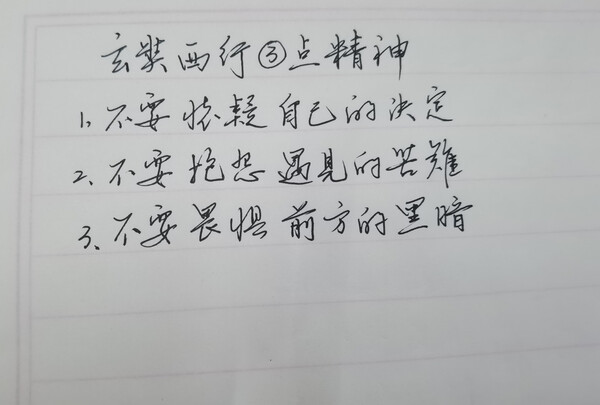 玄奘西行③点精神
1、不要怀疑自己的决定
2、不要抱怨遇见的苦難
3、不要畏惧前方的黑暗